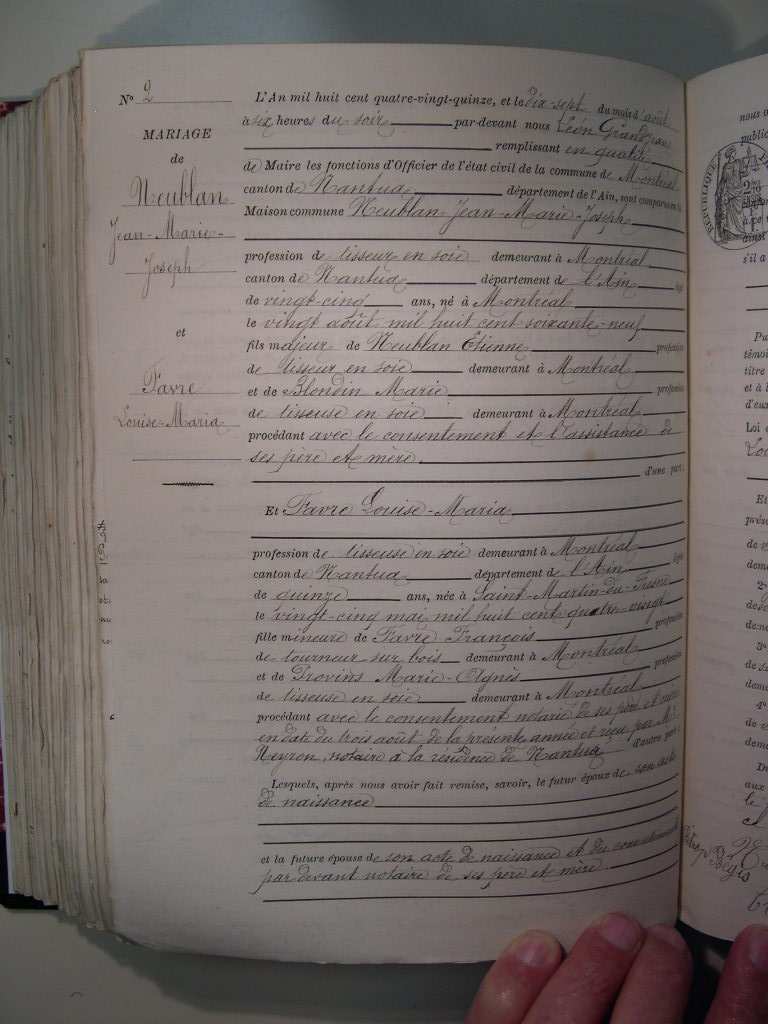 N° 2
MARIAGE
de
Neublan
Jean-Marie-
Joseph
et
Favre
Louise-Maria
L'An mil huit cent quatre-vingt-quinze, et le dix-sept du mois d'août
à six heures du soir par-devant nous Léon Grand
remplissant en qualité
de Maire les fonctions d'Officier de l'état civil de la commune de Montréal
canton de Nantua département de l'Ain, sont comparus en la
Maison commune Neublan Jean-Marie-Joseph
profession de tisseur en soie demeurant à Montréal
canton de Nantua département de l'Ain âgé
de vingt-cinq ans, né à Montréal
le vingt août mil huit cent soixante-neuf
fils majeur de Neublan Etienne profession
de tisseur en soie demeurant à Montréal
et de Blondin Marie profession
de tisseuse en soie demeurant à Montréal
procédant avec le consentement et l'assistance de
ses père et mère d'une part.
Et Favre Louise-Maria
profession de tisseuse en soie demeurant à Montréal
canton de Nantua département de l'Ain âgée
de quinze ans, née à Saint-Martin-du-Fresne
le vingt-cinq mai mil huit cent quatre-vingt
fille mineure de Favre François profession
de tourneur sur bois demeurant à Montréal
et de Provins Marie-Agnès profession
de tisseuse en soie demeurant à Montréal
procédant avec le consentement notarié de ses père et mère
en date du trois août de la présente année et reçu par Me
Neyron, notaire à la résidence de Nantua d'autre part.
Lesquels, après nous avoir fait remise, savoir, le futur époux de son acte
de naissance
et la future épouse de son acte de naissance et du consentement
par devant notaire de ses père et mère.